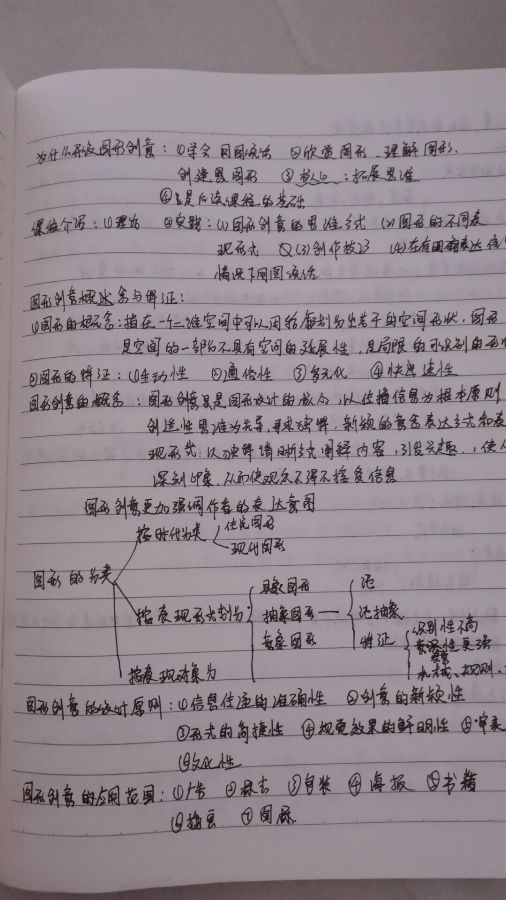 为什么开设图形创意：①学会用图说话 ②欣赏图形、理解图形、
创建思图形 ③核心：拓展思维
④是后设课程的基础
课程介绍：①理论 ②实践：(1)图形创意的思维方式 (2)图形的不同表
现形式 (3)创作技巧 (4)在有明确表达信
情况下用图说话
图形创意概念与特征：
①图形的概念：指在一个二维空间中可以用轮廓划分出若干的空间形状，图形
是空间的一部分不具有空间的延展性，是局限的可识别的形
②图形的特征：①生动性 ②通俗性 ③多元化 ④快速性
图形创意的概念：图形创意是图形设计的核心，以传播信息为根本原则
创造性思维为先导，寻求独特、新颖的意念表达方式和表
现形式，以独特清晰方式阐释内容，引发兴趣，使人
深刻印象，从而使观众不得不接受信息
图形创意更加强调作者的表达意图
图形的分类
按时代分类 传统图形
现代图形
按表现形式划分 具象图形
抽象图形
意象图形
泛
泛抽象
特征 识别性不高
更强
点线、规则、
按表现对象分
图形创意的设计原则：①信息传达的准确性 ②创意的新颖性
③形式的简捷性 ④视觉效果的鲜明性 ⑤审美
⑥文化性
图形创意的应用范围：①广告 ②标志 ③包装 ④海报 ⑤书籍
⑥插画 ⑦图标